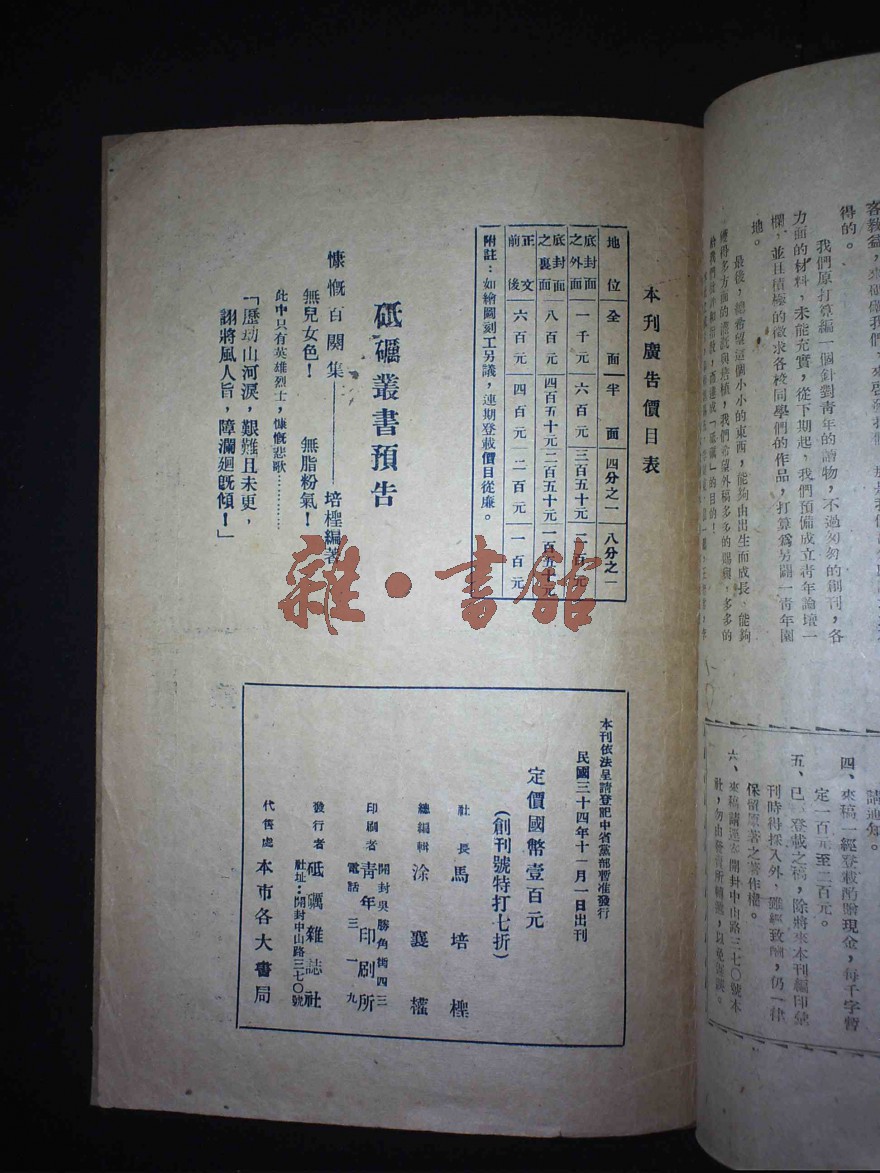 客教益，來砥礪我們，來啓發我們
得的。
我們原打算編一個針對青年的讀物，不過匆匆的創刊，各
力面的材料，未能充實，從下期起，我們預備成立青年論壇一
欄，並且積極的徵求各校同學們的作品，打算爲另闢一青年園
地。
最後，總希望這個小小的東西，能夠由出生而成長，能夠
請通知。
四、來稿一經登載酌贈現金，每千字暫
定一百元至二百元。
五、已登載之稿，除將來本刊編印彙
刊時得採入外，雖經致酬，仍一律
保留原著之著作權。
六、來稿請逕寄開封中山路三七〇號本
本刊廣告價目表
地位 全面 半面 四分之一 八分之一
底封面之外面 一千元 六百元 三百五十元 二百元
底封面之裏面 八百元 四百五十元 二百五十元 一百五十元
正文前後 六百元 四百元 二百元 一百元
附註：如繪圖刻工另議，連期登載價目從廉。
砥礪叢書預告
慷慨百闋集————培樫編著
無兒女色！ 無脂粉氣！
此中只有英雄烈士，慷慨悲歌…………
「歷劫山河淚，艱難且未更，
謝將風人旨，障瀾廻旣傾！」
雜·書館
本刊依法呈請登記中省黨部暫准發行
民國三十四年十一月一日出刊
定價國幣壹百元
（創刊號特打七折）
社長 馬培樫
總編輯 涂襄權
印刷者 青年印刷所
開封吳勝角街四三
電話三一九
發行者 砥礪雜誌社
社址：開封中山路三七〇號
代售處 本市各大書局